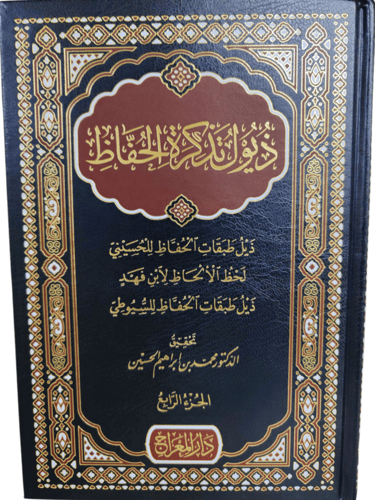 ذُيُولُ تَذْكِرَةِ الحُفَّاظِ
ذَيْلُ طَبَقَاتِ الحُفَّاظِ لِلحُسَيْنِيِّ
لَحْظُ الأَلْحَاظِ لِابْنِ فَهْدٍ
ذَيْلُ طَبَقَاتِ الحُفَّاظِ لِلسُّيُوطِيِّ
تحقيق
الدكتور محمد بن إبراهيم الحسين
الجُزْءُ الرَّابِعُ
دَارُ المِعْرَاجِ